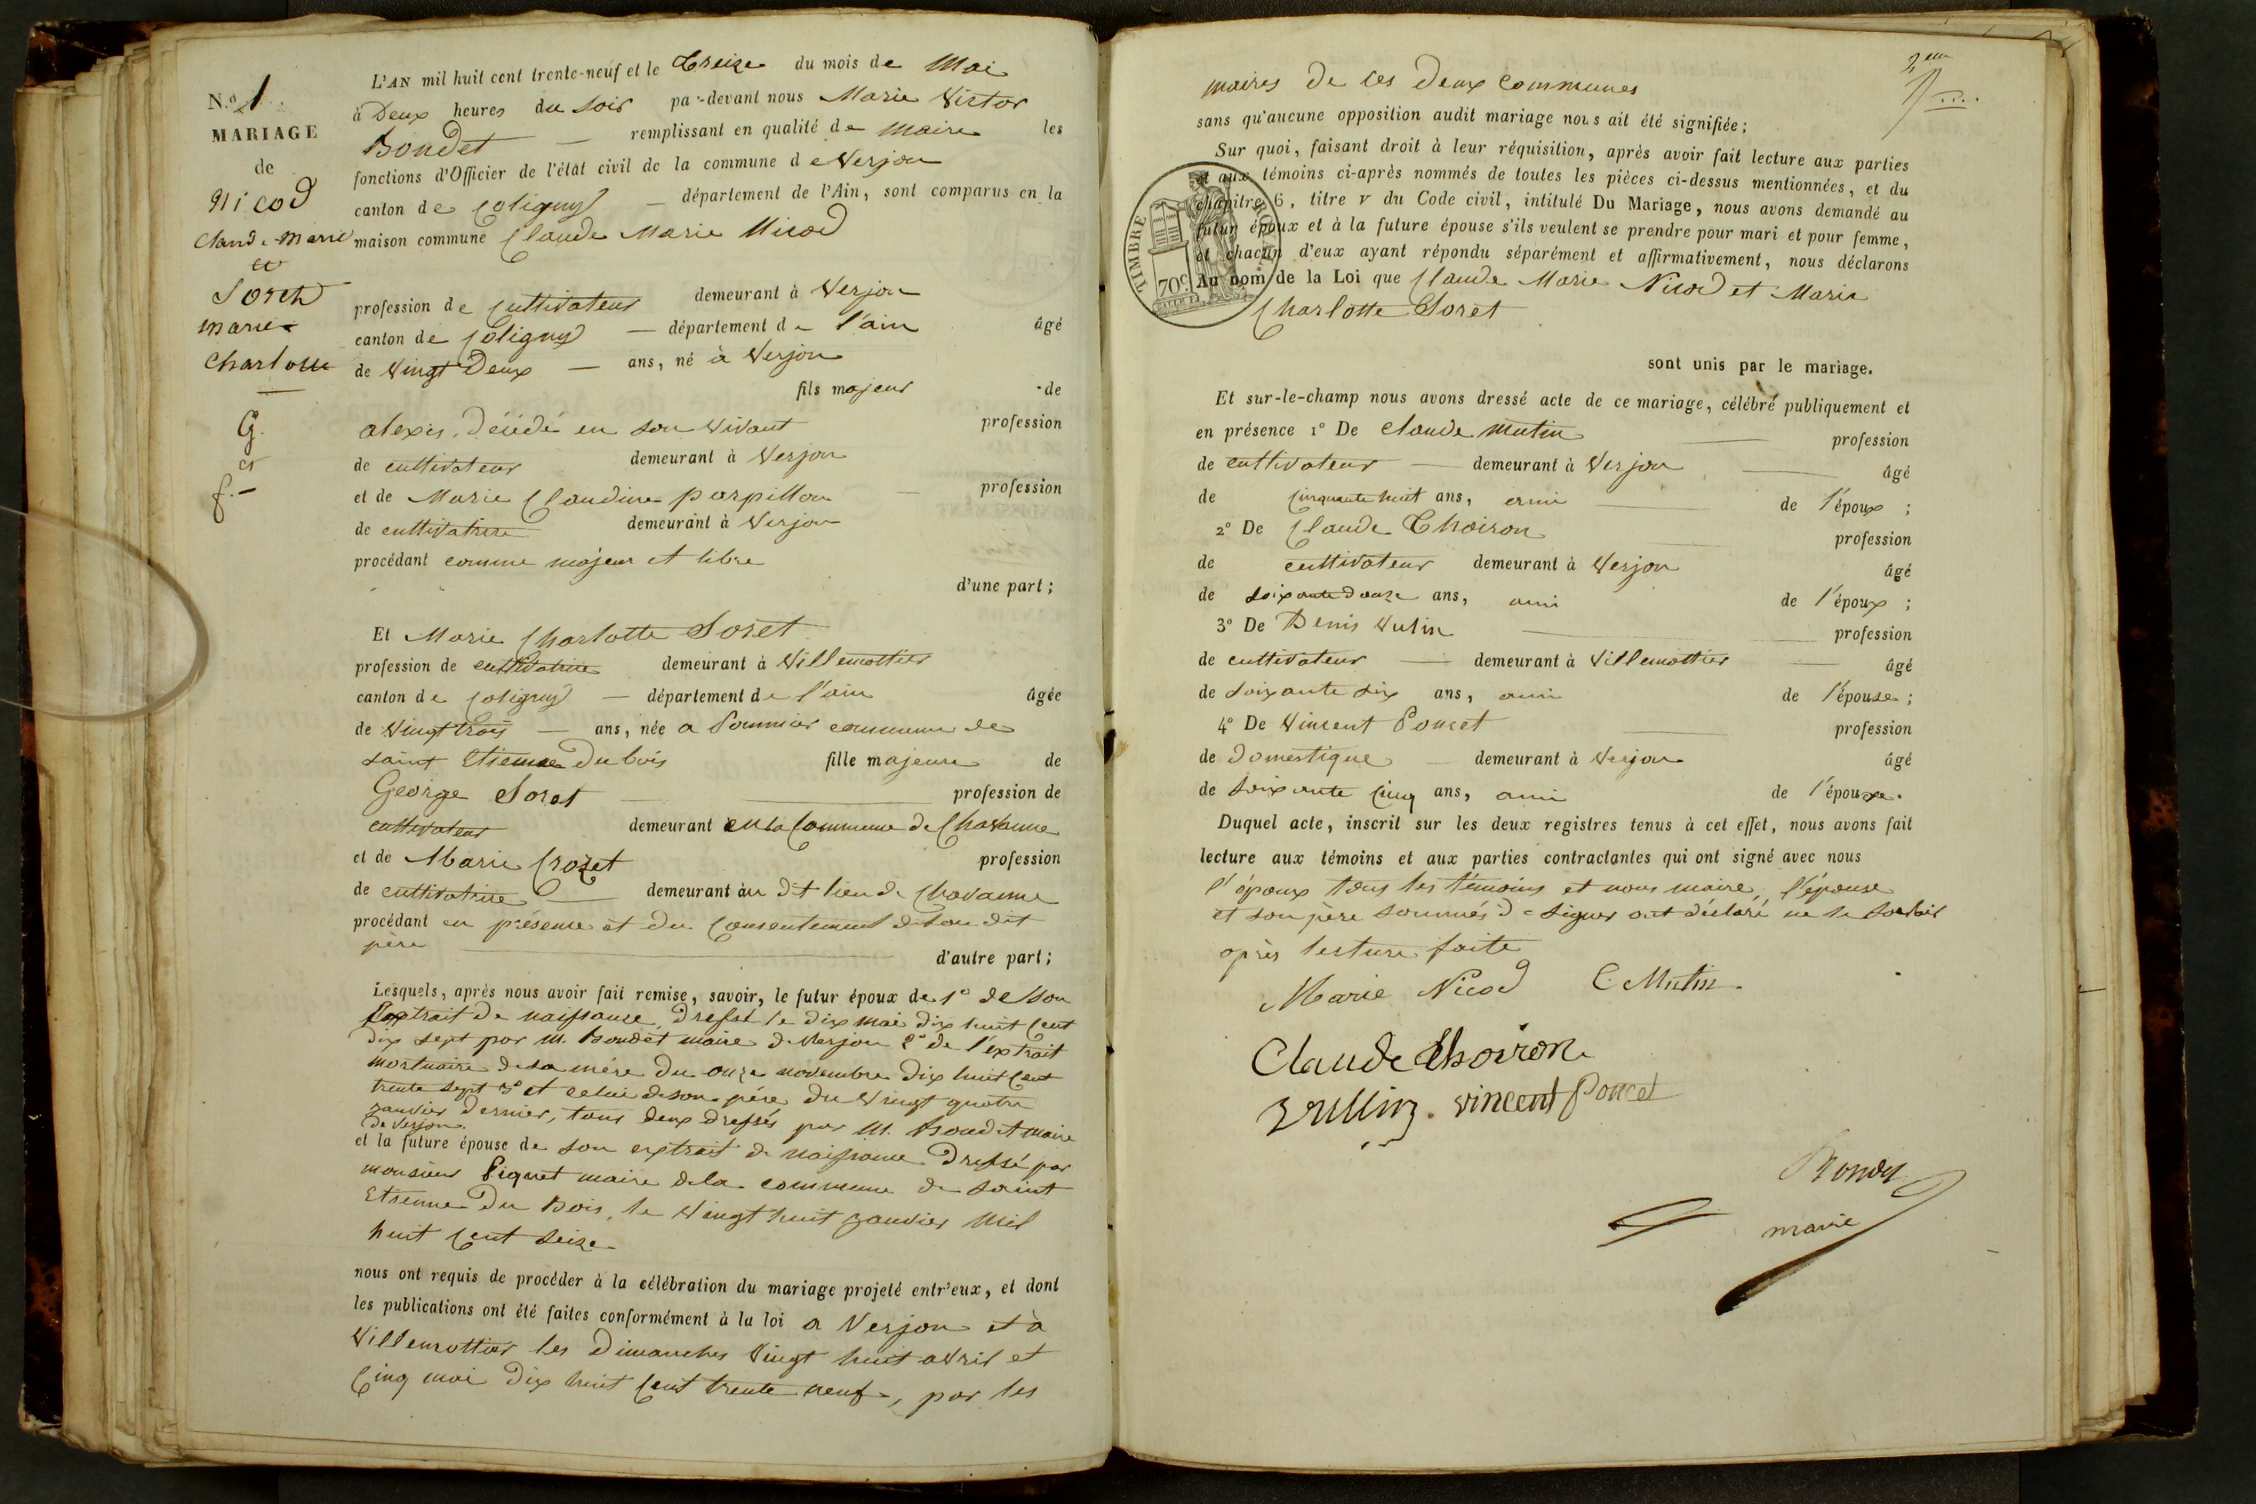 N.º 1
MARIAGE
de
Nicod
Claude Marie
et
Soret
marie
Charlotte
G.
et
f.
L'AN mil huit cent trente-neuf et le Treize du mois de Mai
à Deux heures du soir par-devant nous Marie Victor
Bondet remplissant en qualité de maire les
fonctions d'Officier de l'état civil de la commune de Verjon
canton de Coligny département de l'Ain, sont comparus en la
maison commune Claude Marie Nicod
profession de cultivateur demeurant à Verjon
canton de Coligny département de l'ain âgé
de Vingt Deux ans, né à Verjon
fils majeur de
alexis, décédé en son vivant profession
de cultivateur demeurant à Verjon
et de Marie Claudine parpillon profession
de cultivatrice demeurant à Verjon
procédant comme majeur et libre
d'une part;
Et Marie Charlotte Soret
profession de cultivatrice demeurant à Villemottier
canton de Coligny département de l'ain âgée
de Vingt trois ans, née a Pommier commune de
saint Etienne Du bois fille majeure de
George Soret profession de
cultivateur demeurant en la Commune de Chavanne
et de Marie Crozet profession
de cultivatrice demeurant au dit lieu de Chavanne
procédant en présence et du Consentement de son dit
père d'autre part;
Lesquels, après nous avoir fait remise, savoir, le futur époux de 1º de son
Extrait de naissance, Dressé le dix mai dix huit Cent
dix sept par M. Bondet maire de Verjon 2º de l'extrait
mortuaire de sa mère du onze novembre dix huit Cent
trente sept 3º et celui de son père du vingt quatre
janvier dernier, tous deux dressés par M. Bondet maire
de Verjon.
et la future épouse de son extrait de naissance Dressé par
monsieur Piquet maire de la commune de saint
Etienne Du Bois, le Vingt huit janvier Mil
huit Cent seize
nous ont requis de procéder à la célébration du mariage projeté entr'eux, et dont
les publications ont été faites conformément à la loi a Verjon et à
Villemottier les Dimanches Vingt huit avril et
Cinq mai Dix huit Cent trente neuf, par les
2em
maires de ces deux communes
sans qu'aucune opposition audit mariage nous ait été signifiée;
Sur quoi, faisant droit à leur réquisition, après avoir fait lecture aux parties
et aux témoins ci-après nommés de toutes les pièces ci-dessus mentionnées, et du
chapitre 6, titre v du Code civil, intitulé Du Mariage, nous avons demandé au
futur époux et à la future épouse s'ils veulent se prendre pour mari et pour femme,
et chacun d'eux ayant répondu séparément et affirmativement, nous déclarons
Au nom de la Loi que Claude Marie Nicod et Marie
Charlotte Soret
TIMBRE ROYAL
70c.
sont unis par le mariage.
Et sur-le-champ nous avons dressé acte de ce mariage, célébré publiquement et
en présence 1º De Claude Mutin profession
de cultivateur demeurant à Verjon âgé
de Cinquante huit ans, ami de l'époux ;
2º De Claude Choiron profession
de cultivateur demeurant à Verjon âgé
de soixante douze ans, ami de l'époux ;
3º De Denis Vulin profession
de cultivateur demeurant à Villemottier âgé
de soixante six ans, ami de l'épouse ;
4º De Vincent Poncet profession
de domestique demeurant à Verjon âgé
de soixante Cinq ans, ami de l'épouse.
Duquel acte, inscrit sur les deux registres tenus à cet effet, nous avons fait
lecture aux témoins et aux parties contractantes qui ont signé avec nous
l'époux tous les témoins et nous maire, l'épouse
et son père sommés de signer ont déclaré ne le savoir
après lecture faite
Marie Nicod C Mutin
Claude Choiron
vullin. vincent Poncet
Bondet
maire